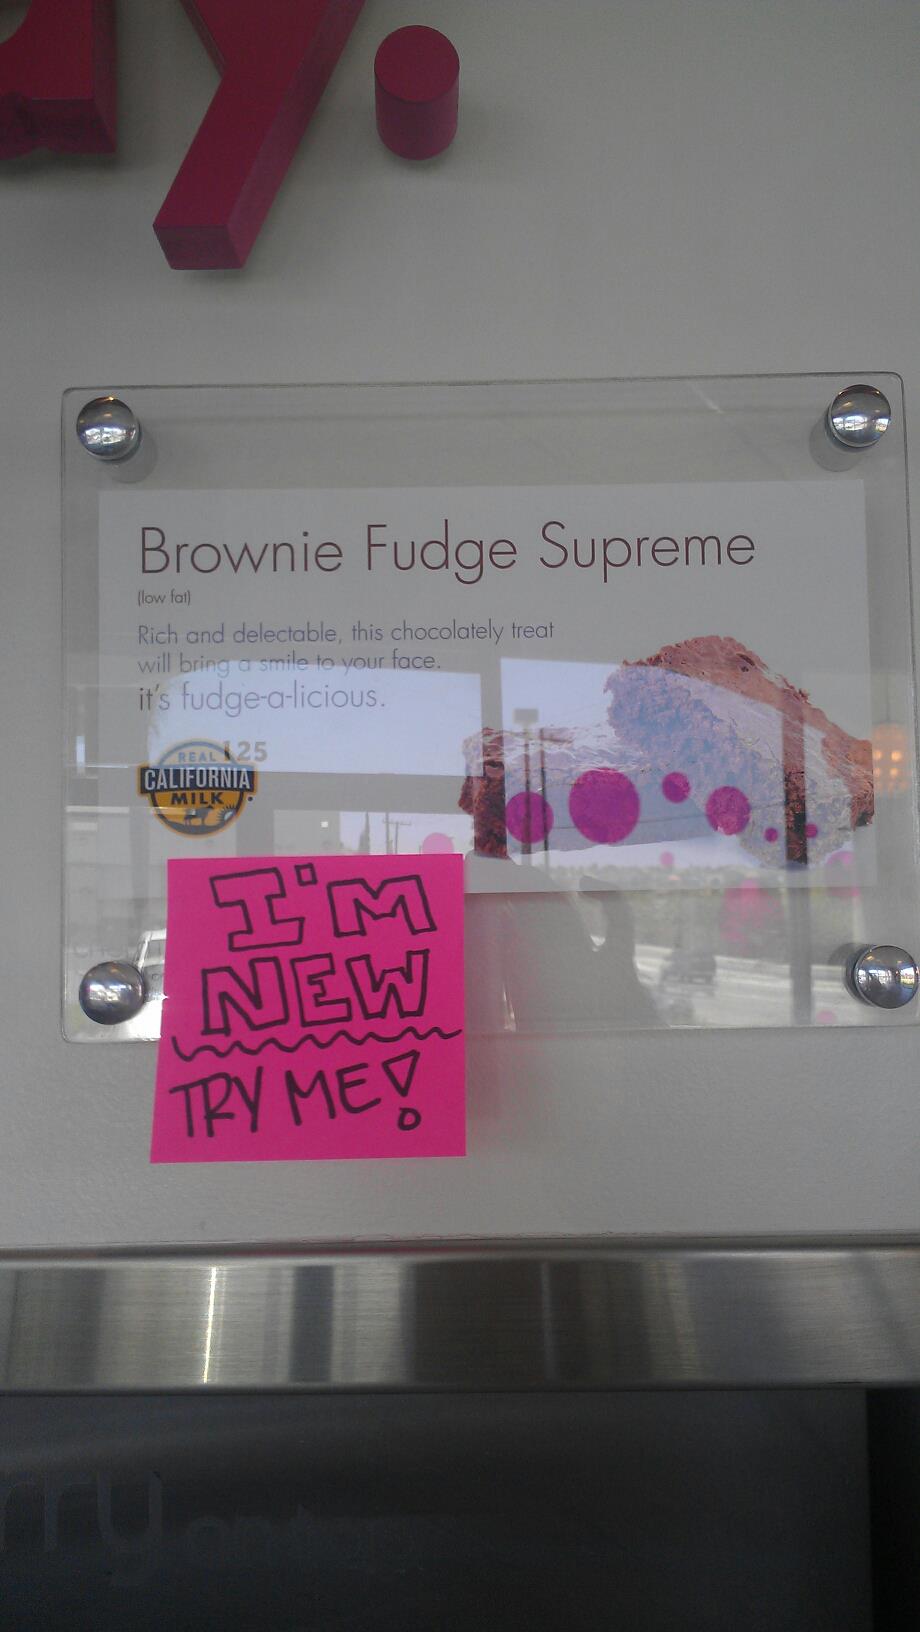 y.
Brownie Fudge Supreme
(low fat)
Rich and delectable, this chocolately treat
will bring a smile to your face.
it's fudge-a-licious.
125
REAL
CALIFORNIA
MILK
I'M
NEW
TRY ME!
rry